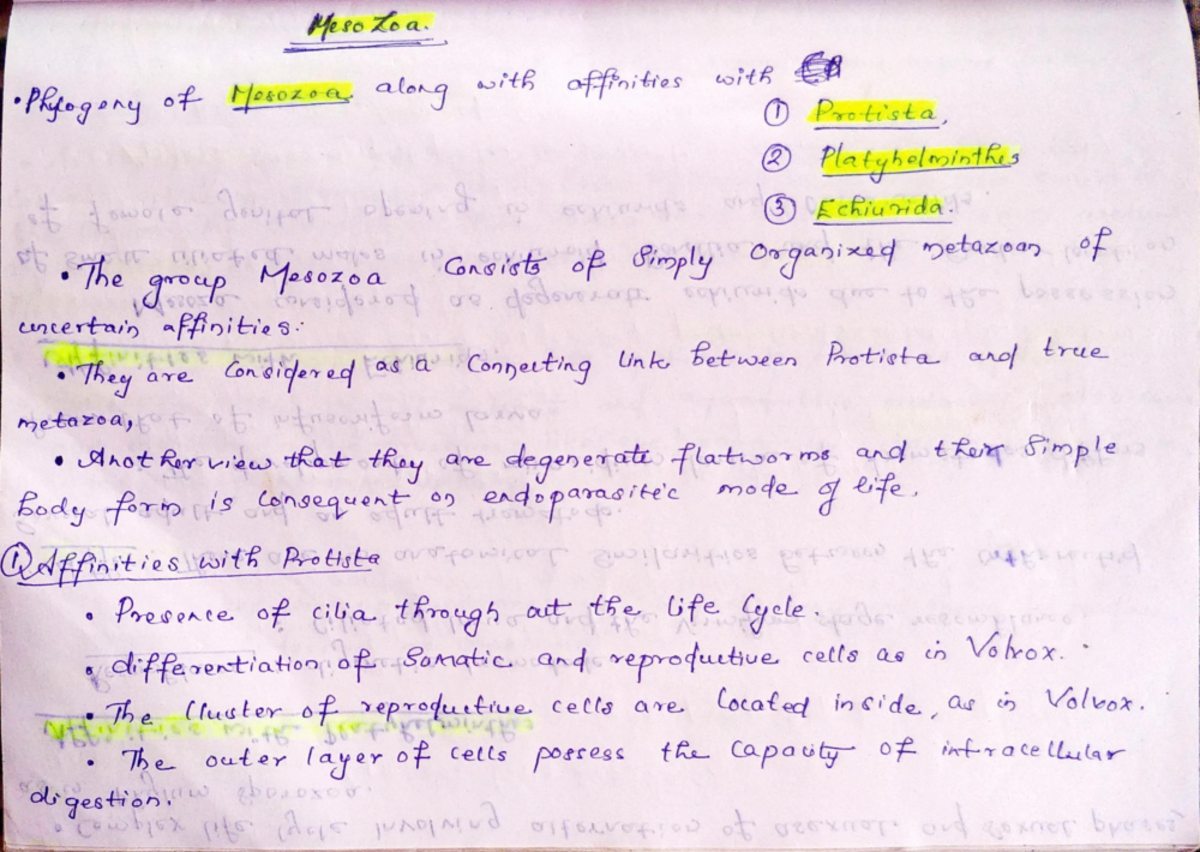 Mesozoa.
• Phylogony of Mesozoa along with affinities with
① Protista,
② Platyhelminthes
③ Echiurida.
• The group Mesozoa Consists of Simply Organized metazoan of
uncertain affinities:
• They are Considered as a Connecting link between Protista and true
metazoa,
• Another view that they are degenerate flatworms and their Simple
Body form is Consequent on endoparasitic mode of life.
① Affinities with Protista
• Presence of cilia through out the life Cycle.
• differentiation of Somatic and reproductive cells as in Volvox.
• The Cluster of reproductive cells are located inside, as in Volvox.
• The outer layer of cells possess the Capacity of intracellular
digestion.